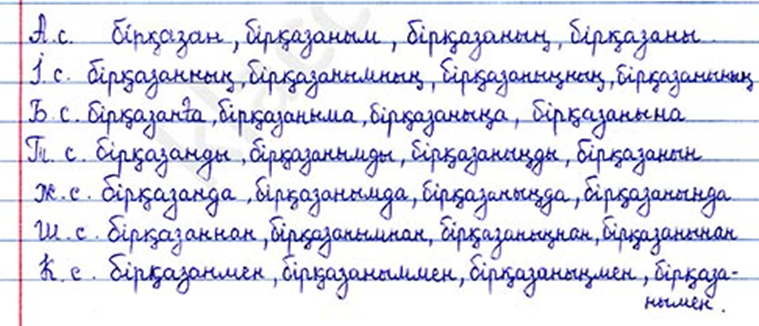 А.с. бірқазан, бірқазаным, бірқазаның, бірқазаны.
І.с. бірқазанның, бірқазанымның, бірқазаныңның, бірқазанының
Б.с. бірқазанға, бірқазаныма, бірқазаныңа, бірқазанына
Т.с. бірқазанды, бірқазанымды, бірқазаныңды, бірқазанын
Ж.с. бірқазанда, бірқазанымда, бірқазаныңда, бірқазанында
Ш.с. бірқазаннан, бірқазанымнан, бірқазаныңнан, бірқазанынан
К.с. бірқазанмен, бірқазаныммен, бірқазаныңмен, бірқаза-
нымен.